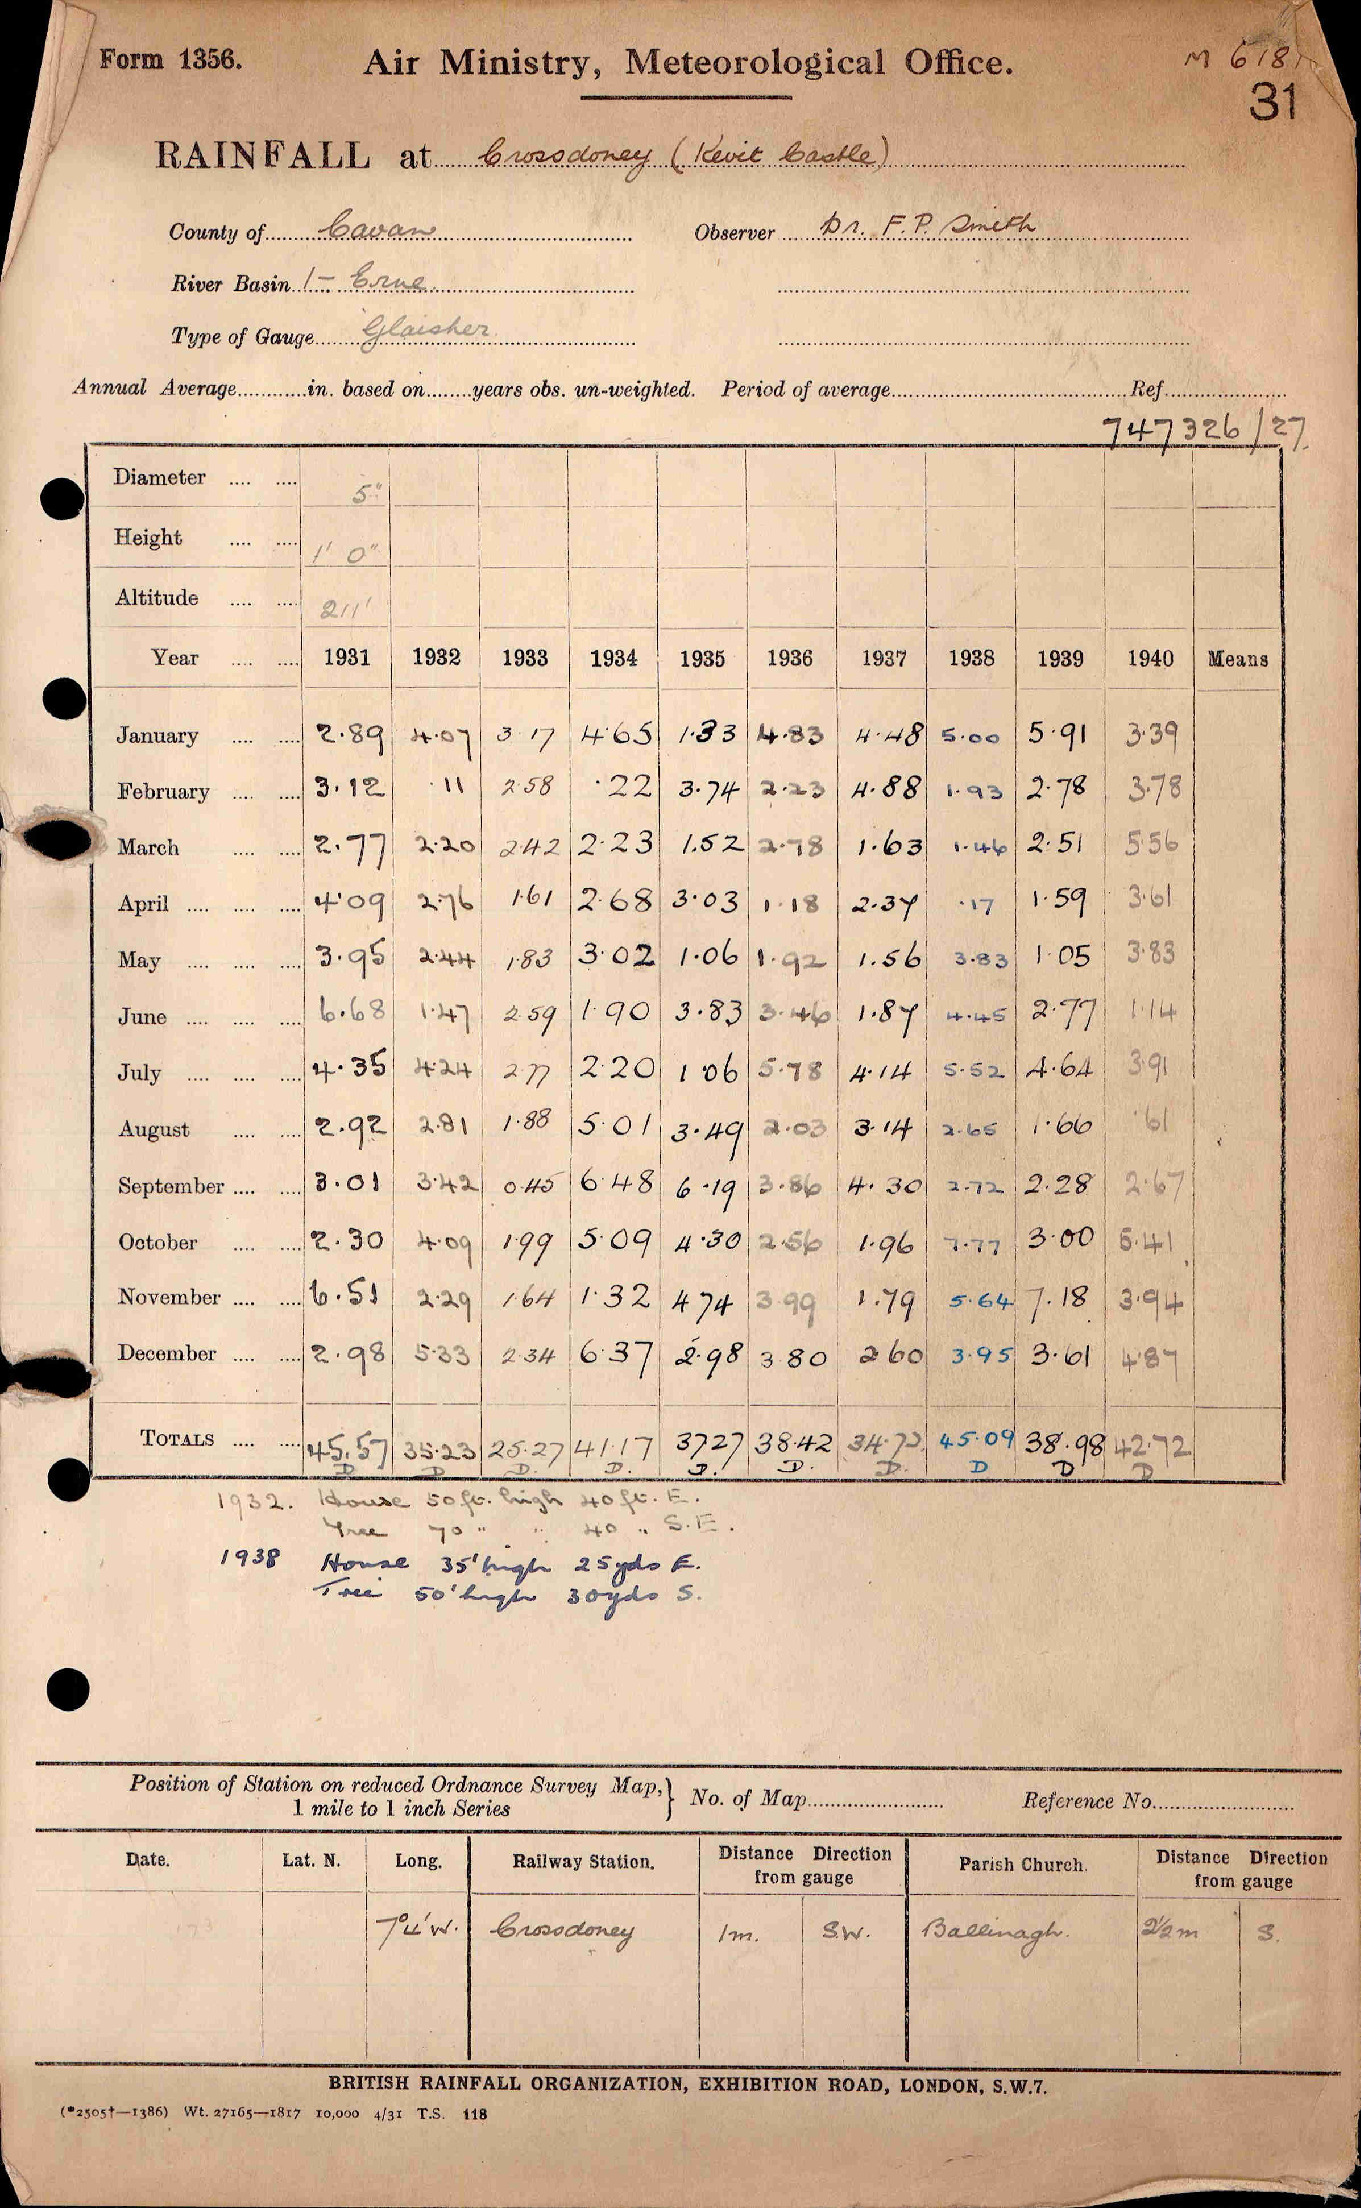 Form 1356.
Air Ministry, Meteorological Office.
M 618
31
RAINFALL at Crossdoney (Kevit Castle)
County of Cavan Observer Dr. F.P. Smith
River Basin 1- Erne
Type of Gauge Glaisher
Annual Average in. based on years obs. un-weighted. Period of average Ref.
747326/27
Diameter 5"
Height 1' 0"
Altitude 211'
Year 1931 1932 1933 1934 1935 1936 1937 1938 1939 1940 Means
January 2.89 4.07 3.17 4.65 1.33 4.83 4.48 5.00 5.91 3.39
February 3.12 .11 2.58 .22 3.74 2.23 4.88 1.93 2.78 3.78
March 2.77 2.20 2.42 2.23 1.52 2.78 1.63 1.46 2.51 5.56
April 4.09 2.76 1.61 2.68 3.03 1.18 2.37 .17 1.59 3.61
May 3.95 2.44 1.83 3.02 1.06 1.92 1.56 3.83 1.05 3.83
June 6.68 1.47 2.59 1.90 3.83 3.46 1.87 4.45 2.77 1.14
July 4.35 4.24 2.77 2.20 1.06 5.78 4.14 5.52 4.64 3.91
August 2.92 2.81 1.88 5.01 3.49 2.03 3.14 2.65 1.66 .61
September 3.01 3.42 0.45 6.48 6.19 3.86 4.30 2.72 2.28 2.67
October 2.30 4.09 1.99 5.09 4.30 2.56 1.96 7.77 3.00 5.41
November 6.51 2.29 1.64 1.32 4.74 3.99 1.79 5.64 7.18 3.94
December 2.98 5.33 2.34 6.37 2.98 3.80 2.60 3.95 3.61 4.87
TOTALS 45.57 35.23 25.27 41.17 37.27 38.42 34.72 45.09 38.98 42.72
D D D. D. D. D. D. D D D
1932. House 50 ft. high 40 ft. E.
Tree 70 " " 40 " S.E.
1938 House 35' high 25 yds E.
Tree 50' high 30 yds S.
Position of Station on reduced Ordnance Survey Map,} No. of Map Reference No.
1 mile to 1 inch Series
Date. Lat. N. Long. Railway Station. Distance Direction from gauge Parish Church. Distance Direction from gauge
7°4'W. Crossdoney 1m. S.W. Ballinagh. 2½m S.
BRITISH RAINFALL ORGANIZATION, EXHIBITION ROAD, LONDON, S.W.7.
(*2505†—1386) Wt. 27165—1817 10,000 4/31 T.S. 118